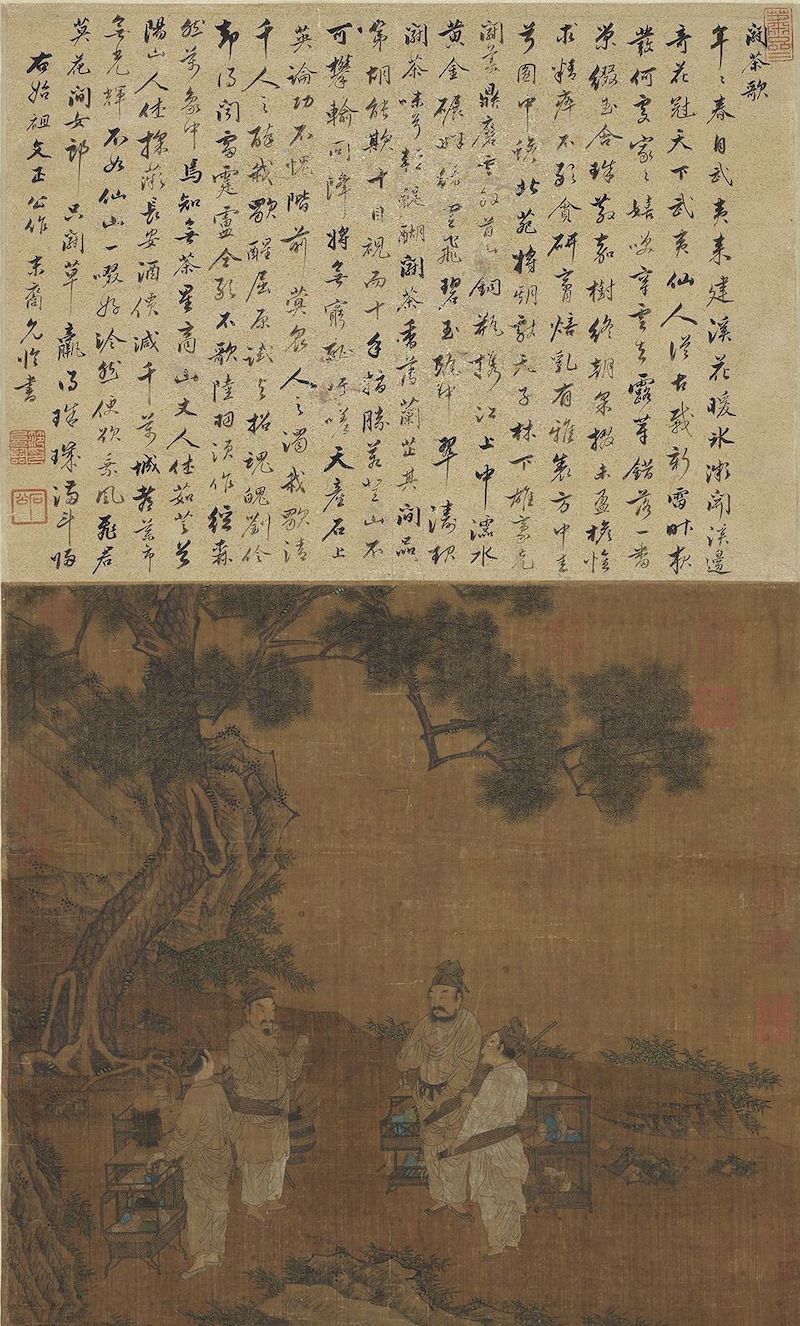 閗茶歌
年〻春自武夷来建溪花暖氷澌開溪邊
奇花冠天下武夷仙人從古栽新雷昨夜
發何處家〻嬉咲穿雲去露芽錯落一番
榮綴玉含珠散嘉樹終朝采掇未盈襜惟
求精粹不敢貪研膏焙乳有雅製方中圭
兮圓中蟾北苑將期獻天子林下雄豪先
閗美鼎磨雲外首山銅瓶携江上中濡水
黄金碾畔緑塵飛碧玉甌中翠濤起
閗茶味兮輕醍醐閗茶香薄蘭芷其間品
第胡能欺十目視而十手指勝若登山不
可攀輸同降將無窮恥吁嗟天産石上
英論功不愧階前蓂衆人之濁我歌清
千人之醉我歌醒屈原試与招魂魄劉伶
却得聞雷霆盧仝敢不歌陸羽須作經森
然萬象中焉知無茶星商山丈人休茹芝首
陽山人休採薇長安酒價減千萬城都藥市
無光輝不如仙山一啜好泠然便欲乘風飛君
莫花間女郎只閗草贏得珠璣滿斗歸
右始祖文正公作末裔允臨書